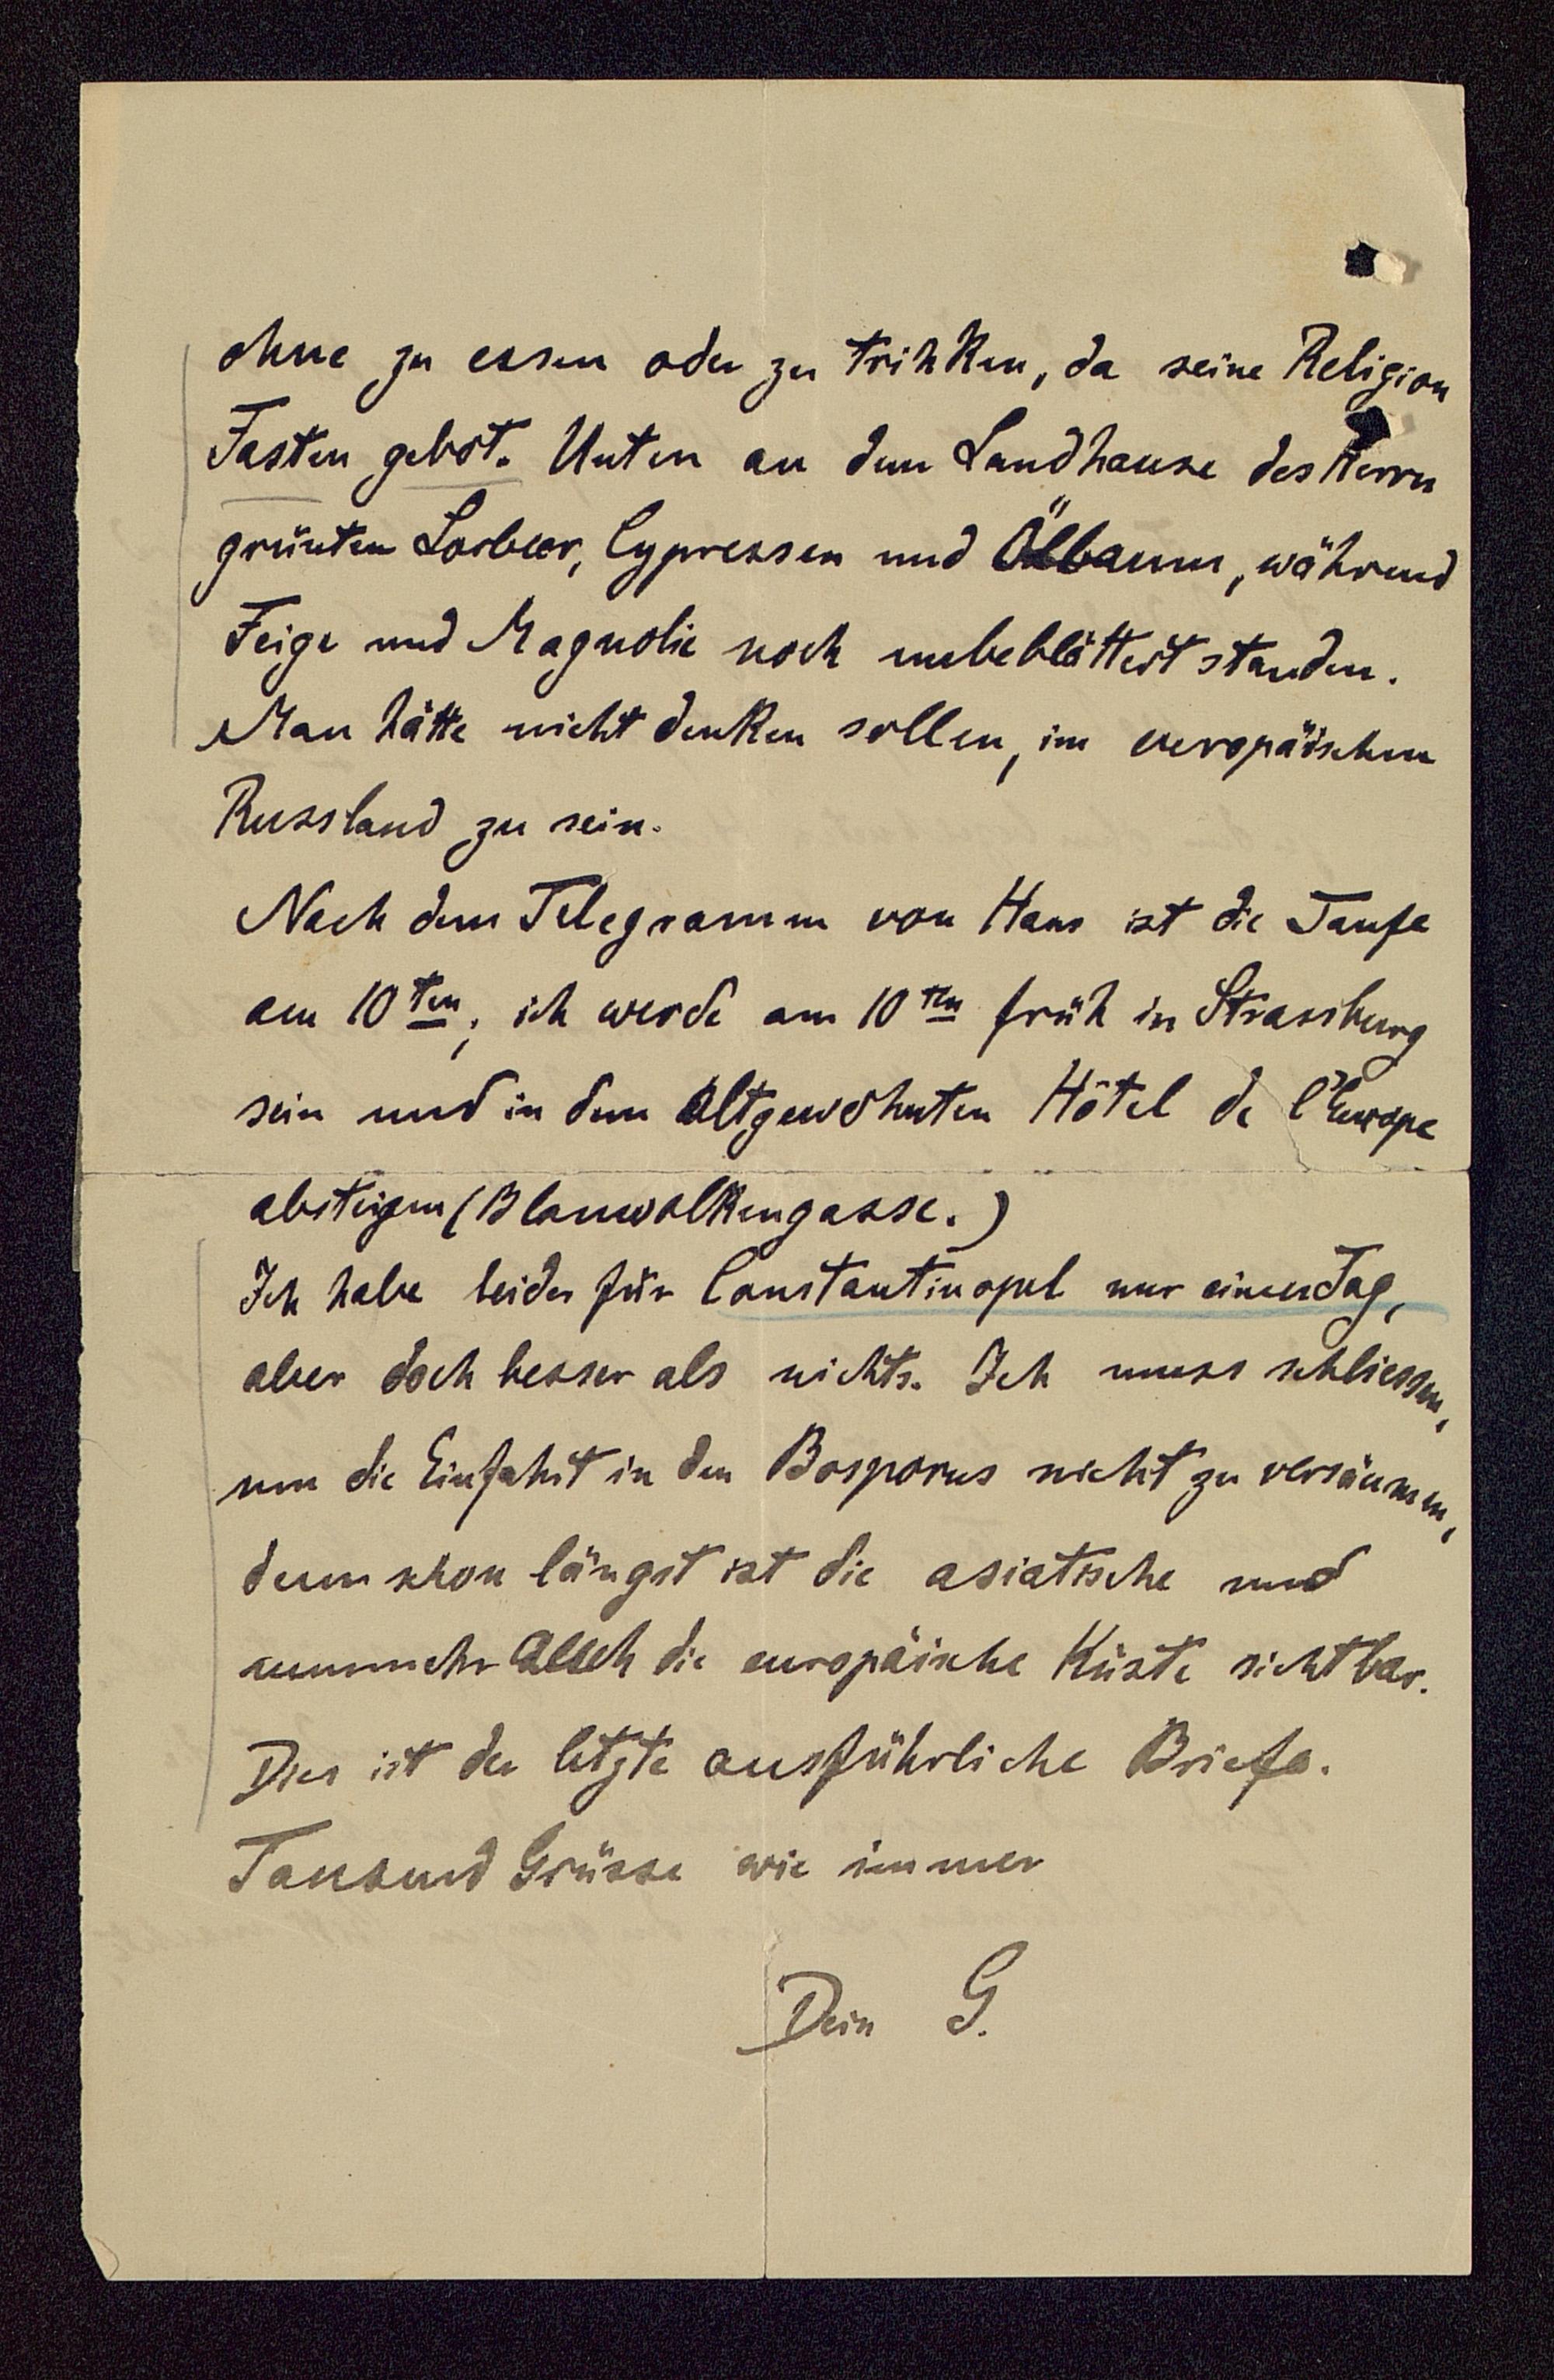 ohne zu essen oder zu trinken, da seine Religion
Fasten gebot. Unten an dem Landhause des Herrn
grünten Lorbeer, Cypressen und Ölbaum, während
Feige und Magnolie noch unbeblättert standen.
Man hätte nicht denken sollen, im europäischen
Russland zu sein.
Nach dem Telegramm von Hans ist die Taufe
am 10ten; ich werde am 10ten früh in Strassburg
sein und in dem altgewohnten Hôtel de l'Europe
absteigen (Blauwolkengasse.)
Ich habe leider für Constantinopel nur einen Tag,
aber doch besser als nichts. Ich muss schliessen,
um die Einfahrt in den Bosporus nicht zu versäumen,
denn schon längst ist die asiatische und
nunmehr auch die europäische Küste sichtbar.
Dies ist der letzte ausführliche Briefe.
Tausend Grüsse wie immer
Dein G.